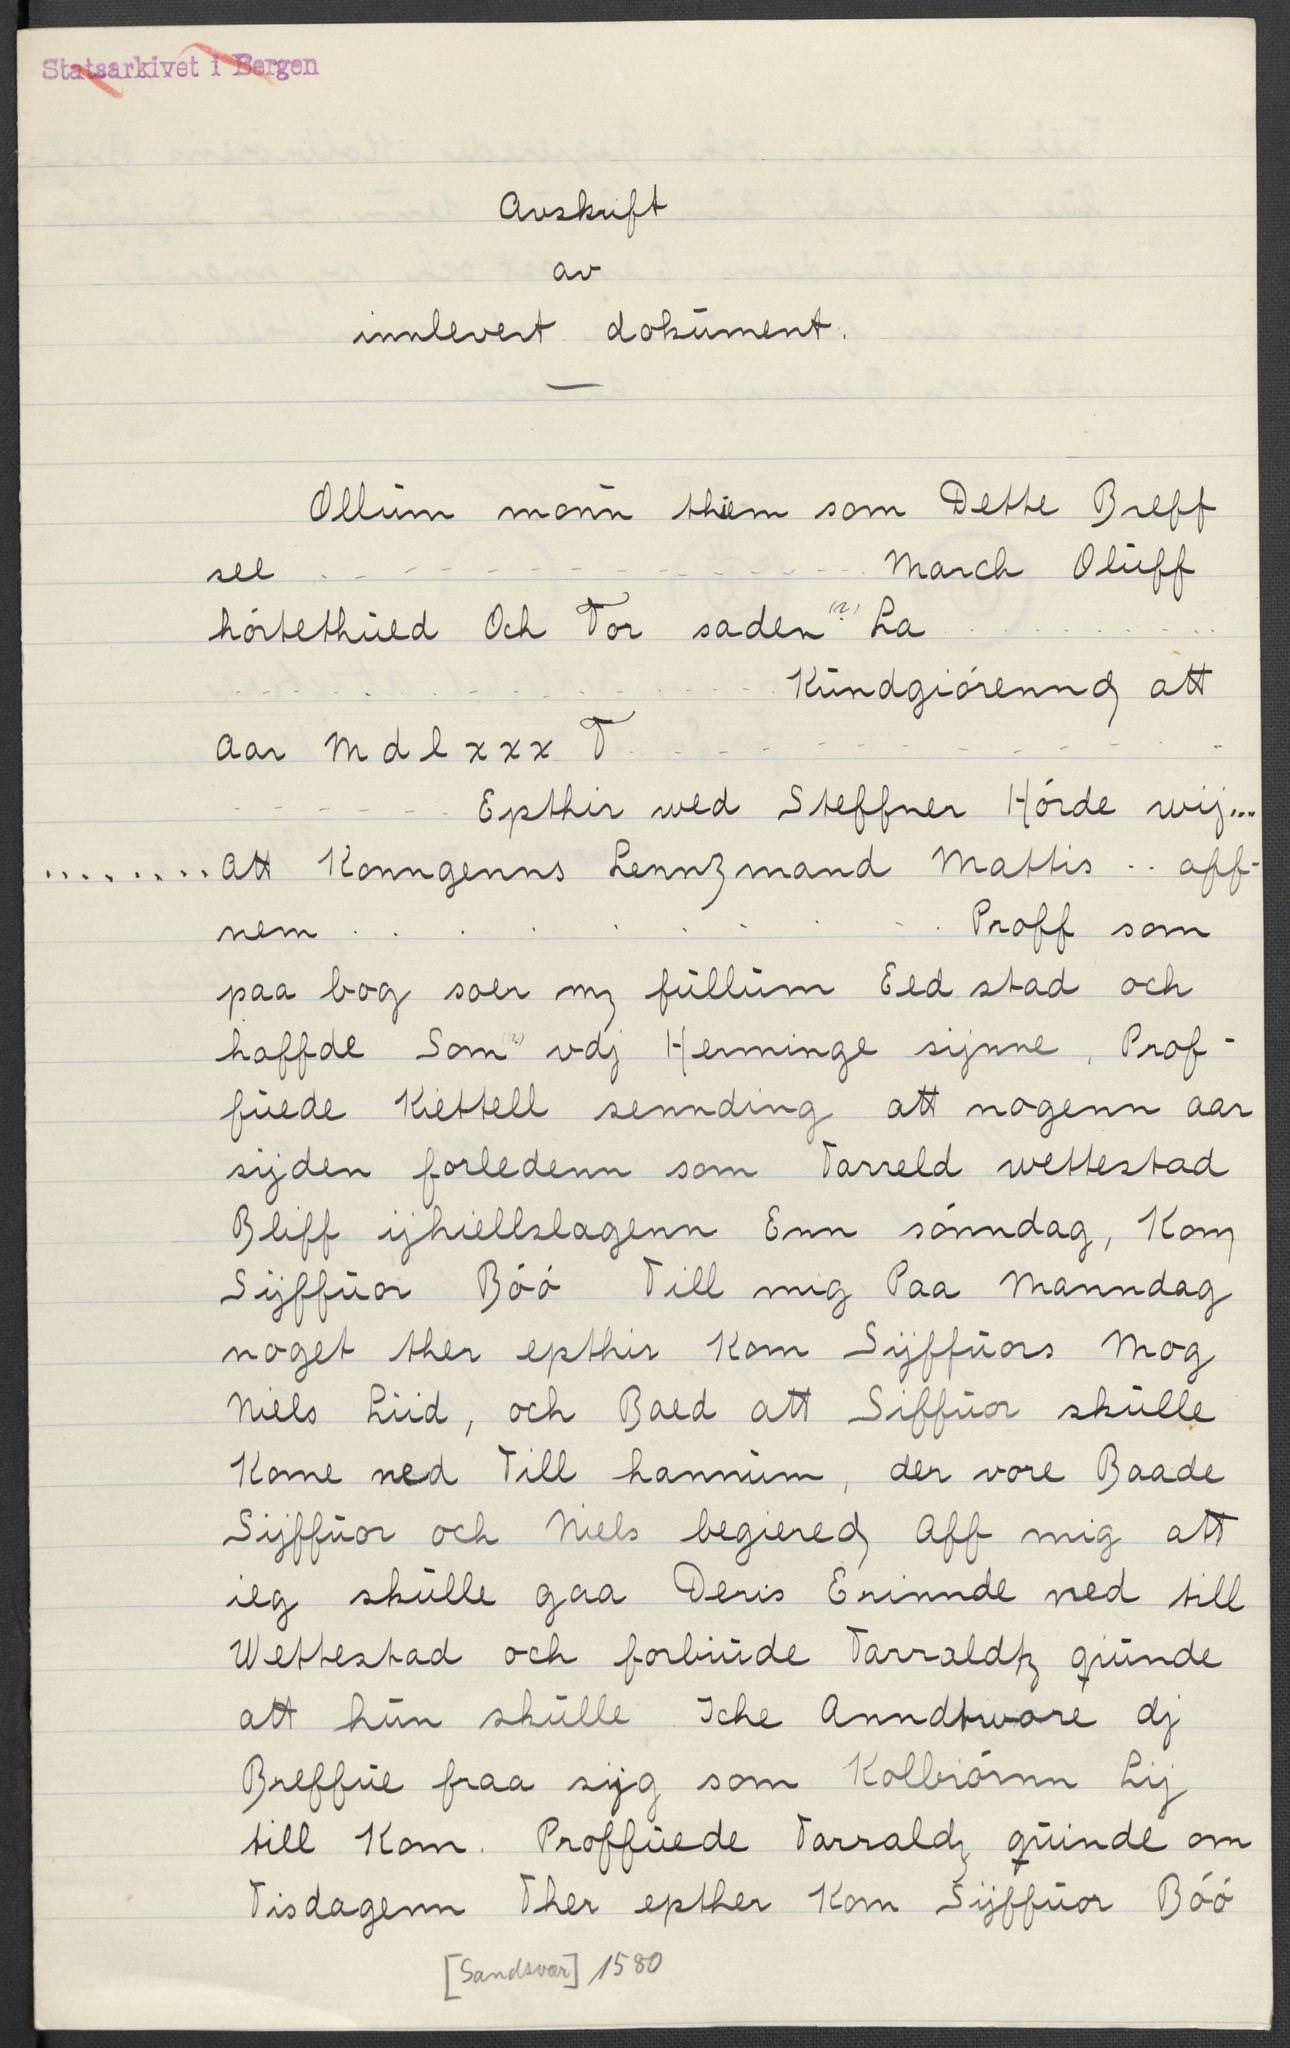 Statsarkivet i Bergen
Avskrift
av
innlevert dokument.
Ollum monn them som Dette Breff
see - - - - - - - - - - - - - - - - March Oluff
hórtethued Och Tor saden (?) La . . . . . . . . .
- - - - - - - - - - - - - - - - Kundgiórennd att
Aar M d l x x x T - - - - - - - - - - - - - -
- - - - - - Epthir wed Steffner Hórde wij...
......... att Konngenns Lennzmand Mattis .. aff-
nem . . . . . . . . . . Proff som
paa bog soer mz fullum Eed stad och
haffde Som (?) vdj Herminge sijnne, Prof-
fuede Kiettell sennding att nogenn aar
sijden forledenn som Tarreld wettestad
Bliff ijhiellslagenn Enn sónndag, Kom
Sijffuor Bóó Till mig Paa Manndag
noget ther epthir Kom Sijffuors Mog
Niels Liid, och Baed att Siffuor skulle
Kome ned Till hannum, der vore Baade
Sijffuor och Niels begiered Aff mig att
ieg skulle gaa Deris Erinnde ned till
Wettestad och forbiude Tarraldz quinde
att hun skulle Iche Anndtvore dj
Breffue fraa sijg som Kolbiórnn Lij
till Kom. Proffuede Tarraldz quinde om
Tisdagenn Ther epther Kom Sijffuor Bóó
[Sandsvær] 1580